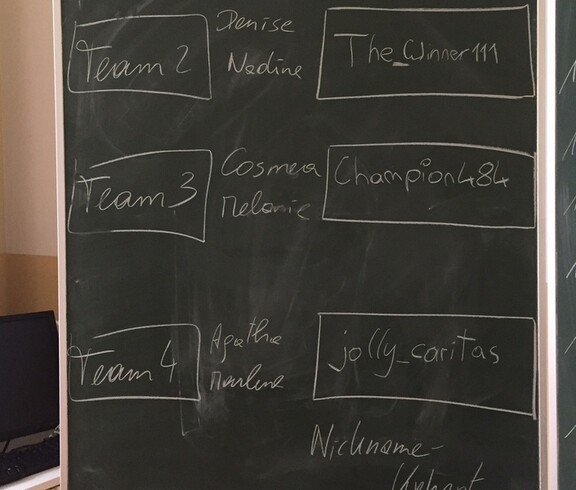 Team 2
Denise
Nadine
The_Winner111
Team 3
Cosmea
Melanie
Champion484
Team 4
Agatha
Marlene
jolly_caritas
Nickname-